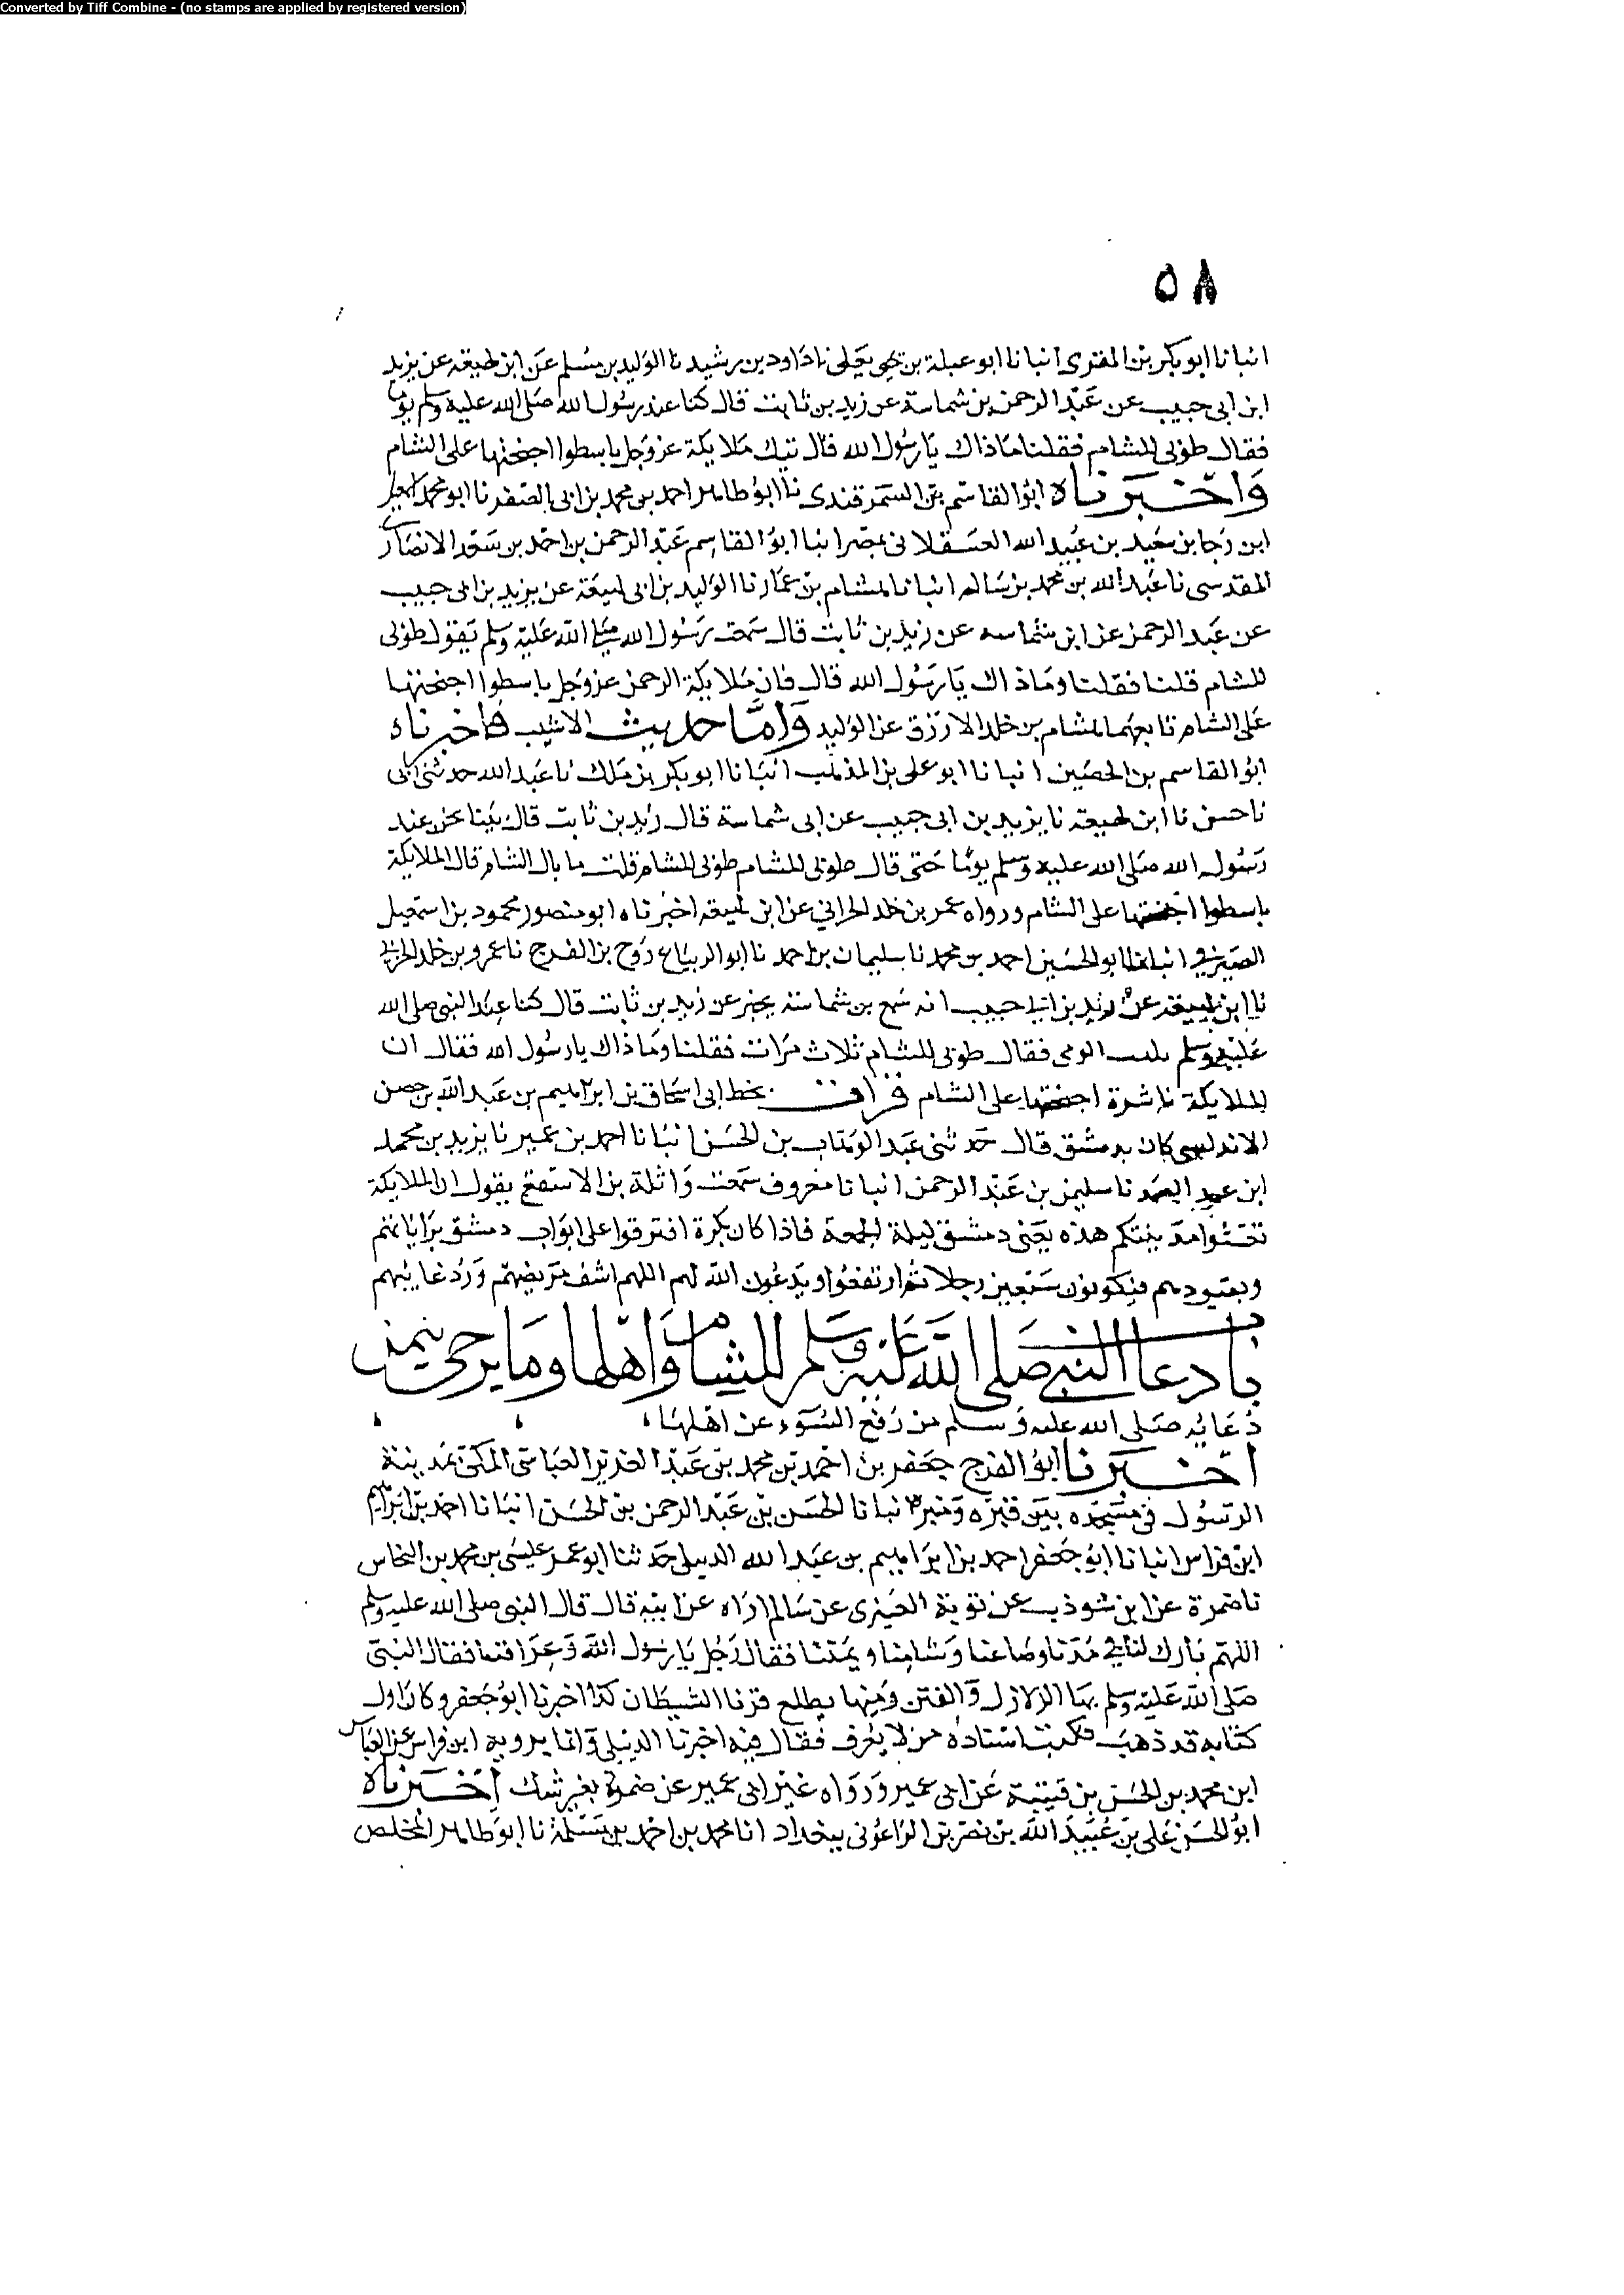 Converted by Tiff Combine - (no stamps are applied by registered version)
٥٨
انبانا ابو بكر بن المقرى انبانا ابو عبلة بن يعلى نا داود بن رشيد نا الوليد بن مسلم عن ابن لهيعة عن يزيد
ابن ابى حبيب عن عبد الرحمن بن شماسة عن زيد بن ثابت قال كنا عند رسول الله صلى الله عليه وسلم يوما
فقال طوبى للشام فقلنا ما ذاك يا رسول الله قال تيك ملايكة عز وجل باسطوا اجنحتها على الشام
واخبرناه ابو القاسم بن السمرقندى نا ابو طاهر احمد بن محمد بن ابى الصقر نا ابو محمد
ابن رجا بن سعيد بن عبيد الله العسقلانى بمصر انبا ابو القاسم عبد الرحمن بن احمد بن سعد الانصارى
المقدسى نا عبد الله بن محمد بن سالم انبانا هشام بن عمار نا الوليد بن ابى لهيعة عن يزيد بن ابى حبيب
عن عبد الرحمن عن ابن شماسه عن زيد بن ثابت قال سمعت رسول الله صلى الله عليه وسلم يقول طوبى
للشام قلنا فقلنا وما ذاك يا رسول الله قال فان ملايكة الرحمن عز وجل باسطوا اجنحتها
على الشام تابعهما هشام بن خلد الازرق عن الوليد واما حديث الاشيب فاخبرناه
ابو القاسم بن الحصين انبانا ابو على بن المذهب انبانا ابو بكر بن ملك نا عبد الله حدثنى ابى
نا حسن نا ابن لهيعة نا يزيد بن ابى حبيب عن ابى شماسة قال زيد بن ثابت قال بينا نحن عند
رسول الله صلى الله عليه وسلم يوما حتى قال طوبى للشام طوبى للشام قلت ما بال الشام قال الملايكة
باسطوا اجنحتها على الشام ورواه عمر بن خلد الحرانى عن ابن لهيعة اخبرناه ابو منصور محمود بن اسمعيل
الصيرفى انبانا ابو الحسين احمد بن محمد نا سليمان بن احمد نا ابو الزنباع روح بن الفرج نا عمرو بن خلد الحرانى
نا ابن لهيعة عن يزيد بن ابى حبيب انه سمع بن شماسة يخبر عن زيد بن ثابت قال كنا عند النبى صلى الله
عليه وسلم الوحى فقال طوبى للشام ثلاث مرات فقلنا وما ذاك يا رسول الله فقال ان
الملايكة ناشرة اجنحتها على الشام قرات بخط ابى اسحاق بن ابراهيم بن عبد الله بن حصن
الاندلسى كان بدمشق قال حدثنى عبد الوهاب بن الحسن انبانا احمد بن عمير نا يزيد بن محمد
ابن عبد الصمد نا سليمن بن عبد الرحمن انبانا معروف سمعت واثلة بن الاسقع يقول ان الملايكة
مدينتكم هذه يعنى دمشق ليلة الجمعة فاذا كان بكرة افترقوا على ابواب دمشق براياتهم
وبنودهم فيكونون سبعين رجلا ثم ارتفعوا ويدعون الله لهم اللهم اشف مريضهم ورد غايبهم
باب دعا النبى صلى الله عليه وسلم للشام واهلها وما يرجى بيمن
دعايه صلى الله عليه وسلم من رفع السوء عن اهلها
اخبرنا ابو الفرج جعفر بن احمد بن محمد بن عبد العزيز العباسى المكى بمدينة
الرسول فى مسجده بين قبره ومنبره انبانا الحسن بن عبد الرحمن بن الحسن انبانا احمد بن ابراهيم
ابن فراس انبانا ابو جعفر احمد بن ابراهيم بن عبد الله الديبلى حدثنا ابو عمر عيسى بن محمد بن النحاس
نا ضمرة عن ابن شوذب عن توبة العنبرى عن سالم اراه عن ابيه قال قال النبى صلى الله عليه وسلم
اللهم بارك لنا فى مدنا وصاعنا وشامنا ويمننا فقال رجل يا رسول الله وعراقنا فقال النبى
صلى الله عليه وسلم بها الزلازل والفتن ومنها يطلع قرن الشيطان كذا اخبرنا ابو جعفر وكان اول
كتابه قد ذهب فكتب اسناده من لا يعرف فقال فيه اخبرنا الديبلى وانما يرويه ابن فراس عن العباس
ابن محمد بن الحسن بن قتيبة عن ابى عمير ورواه غير ابى عمير عن ضمرة بغير شك اخبرناه
ابو الحسن على بن عبيد الله بن نصر بن الزاغونى ببغداد انا محمد بن احمد بن مسلمة نا ابو طاهر المخلص